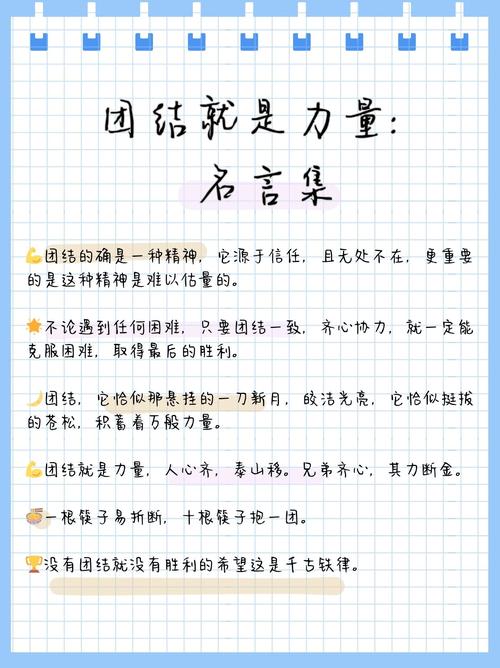 团结就是力量:
名言集
团结的确是一种精神，它源于信任，且无处不在，更重要
的是这种精神是难以估量的。
不论遇到任何困难，只要团结一致，齐心协力，就一定能
克服困难，取得最后的胜利。
团结，它恰似那悬挂的一刀新月，皎洁光亮，它恰似挺拔
的苍松，积蓄着万般力量。
团结就是力量，人心齐，泰山移。兄弟齐心，其力断金。
一根筷子易折断，十根筷子抱一团。
没有团结就没有胜利的希望这是千古铁律。